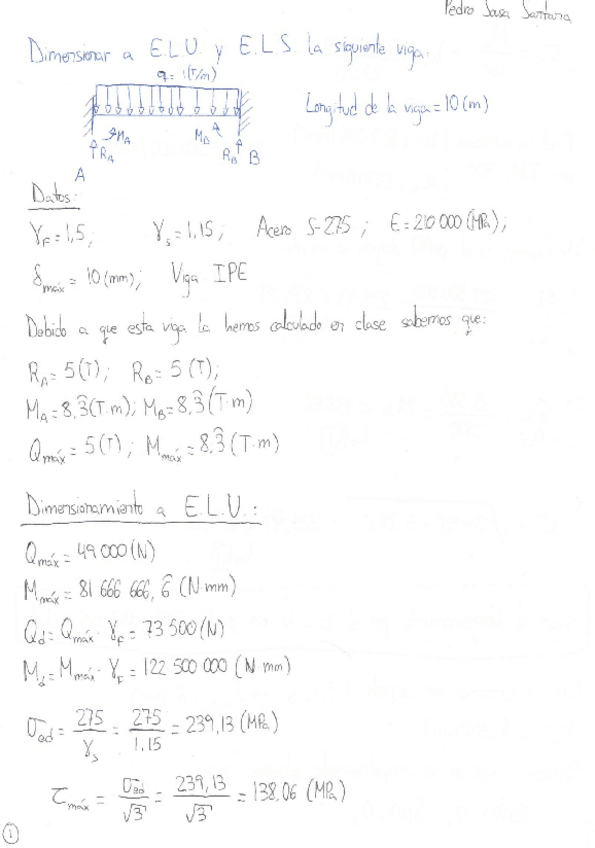 Pedro Sosa Santana
Dimensionar a E.L.U. y E.L.S. la siguiente viga:
q = 1 (T/m)
Longitud de la viga = 10 (m)
M_A M_B
R_A R_B B
A
Datos:
γ_F = 1,5; γ_s = 1,15; Acero S-275; E = 210 000 (MPa);
δ_máx = 10 (mm); Viga IPE
Debido a que esta viga la hemos calculado en clase sabemos que:
R_A = 5 (T); R_B = 5 (T);
M_A = 8,3̂ (T·m); M_B = 8,3̂ (T·m)
Q_máx = 5 (T); M_máx = 8,3̂ (T·m)
Dimensionamiento a E.L.U.:
Q_máx = 49 000 (N)
M_máx = 81 666 666, 6̂ (N·mm)
Q_d = Q_máx · γ_F = 73 500 (N)
M_d = M_máx · γ_F = 122 500 000 (N·mm)
σ_ed = 275/γ_s = 275/1,15 = 239,13 (MPa)
τ_máx = σ_ed/√3 = 239,13/√3 = 138,06 (MPa)
1